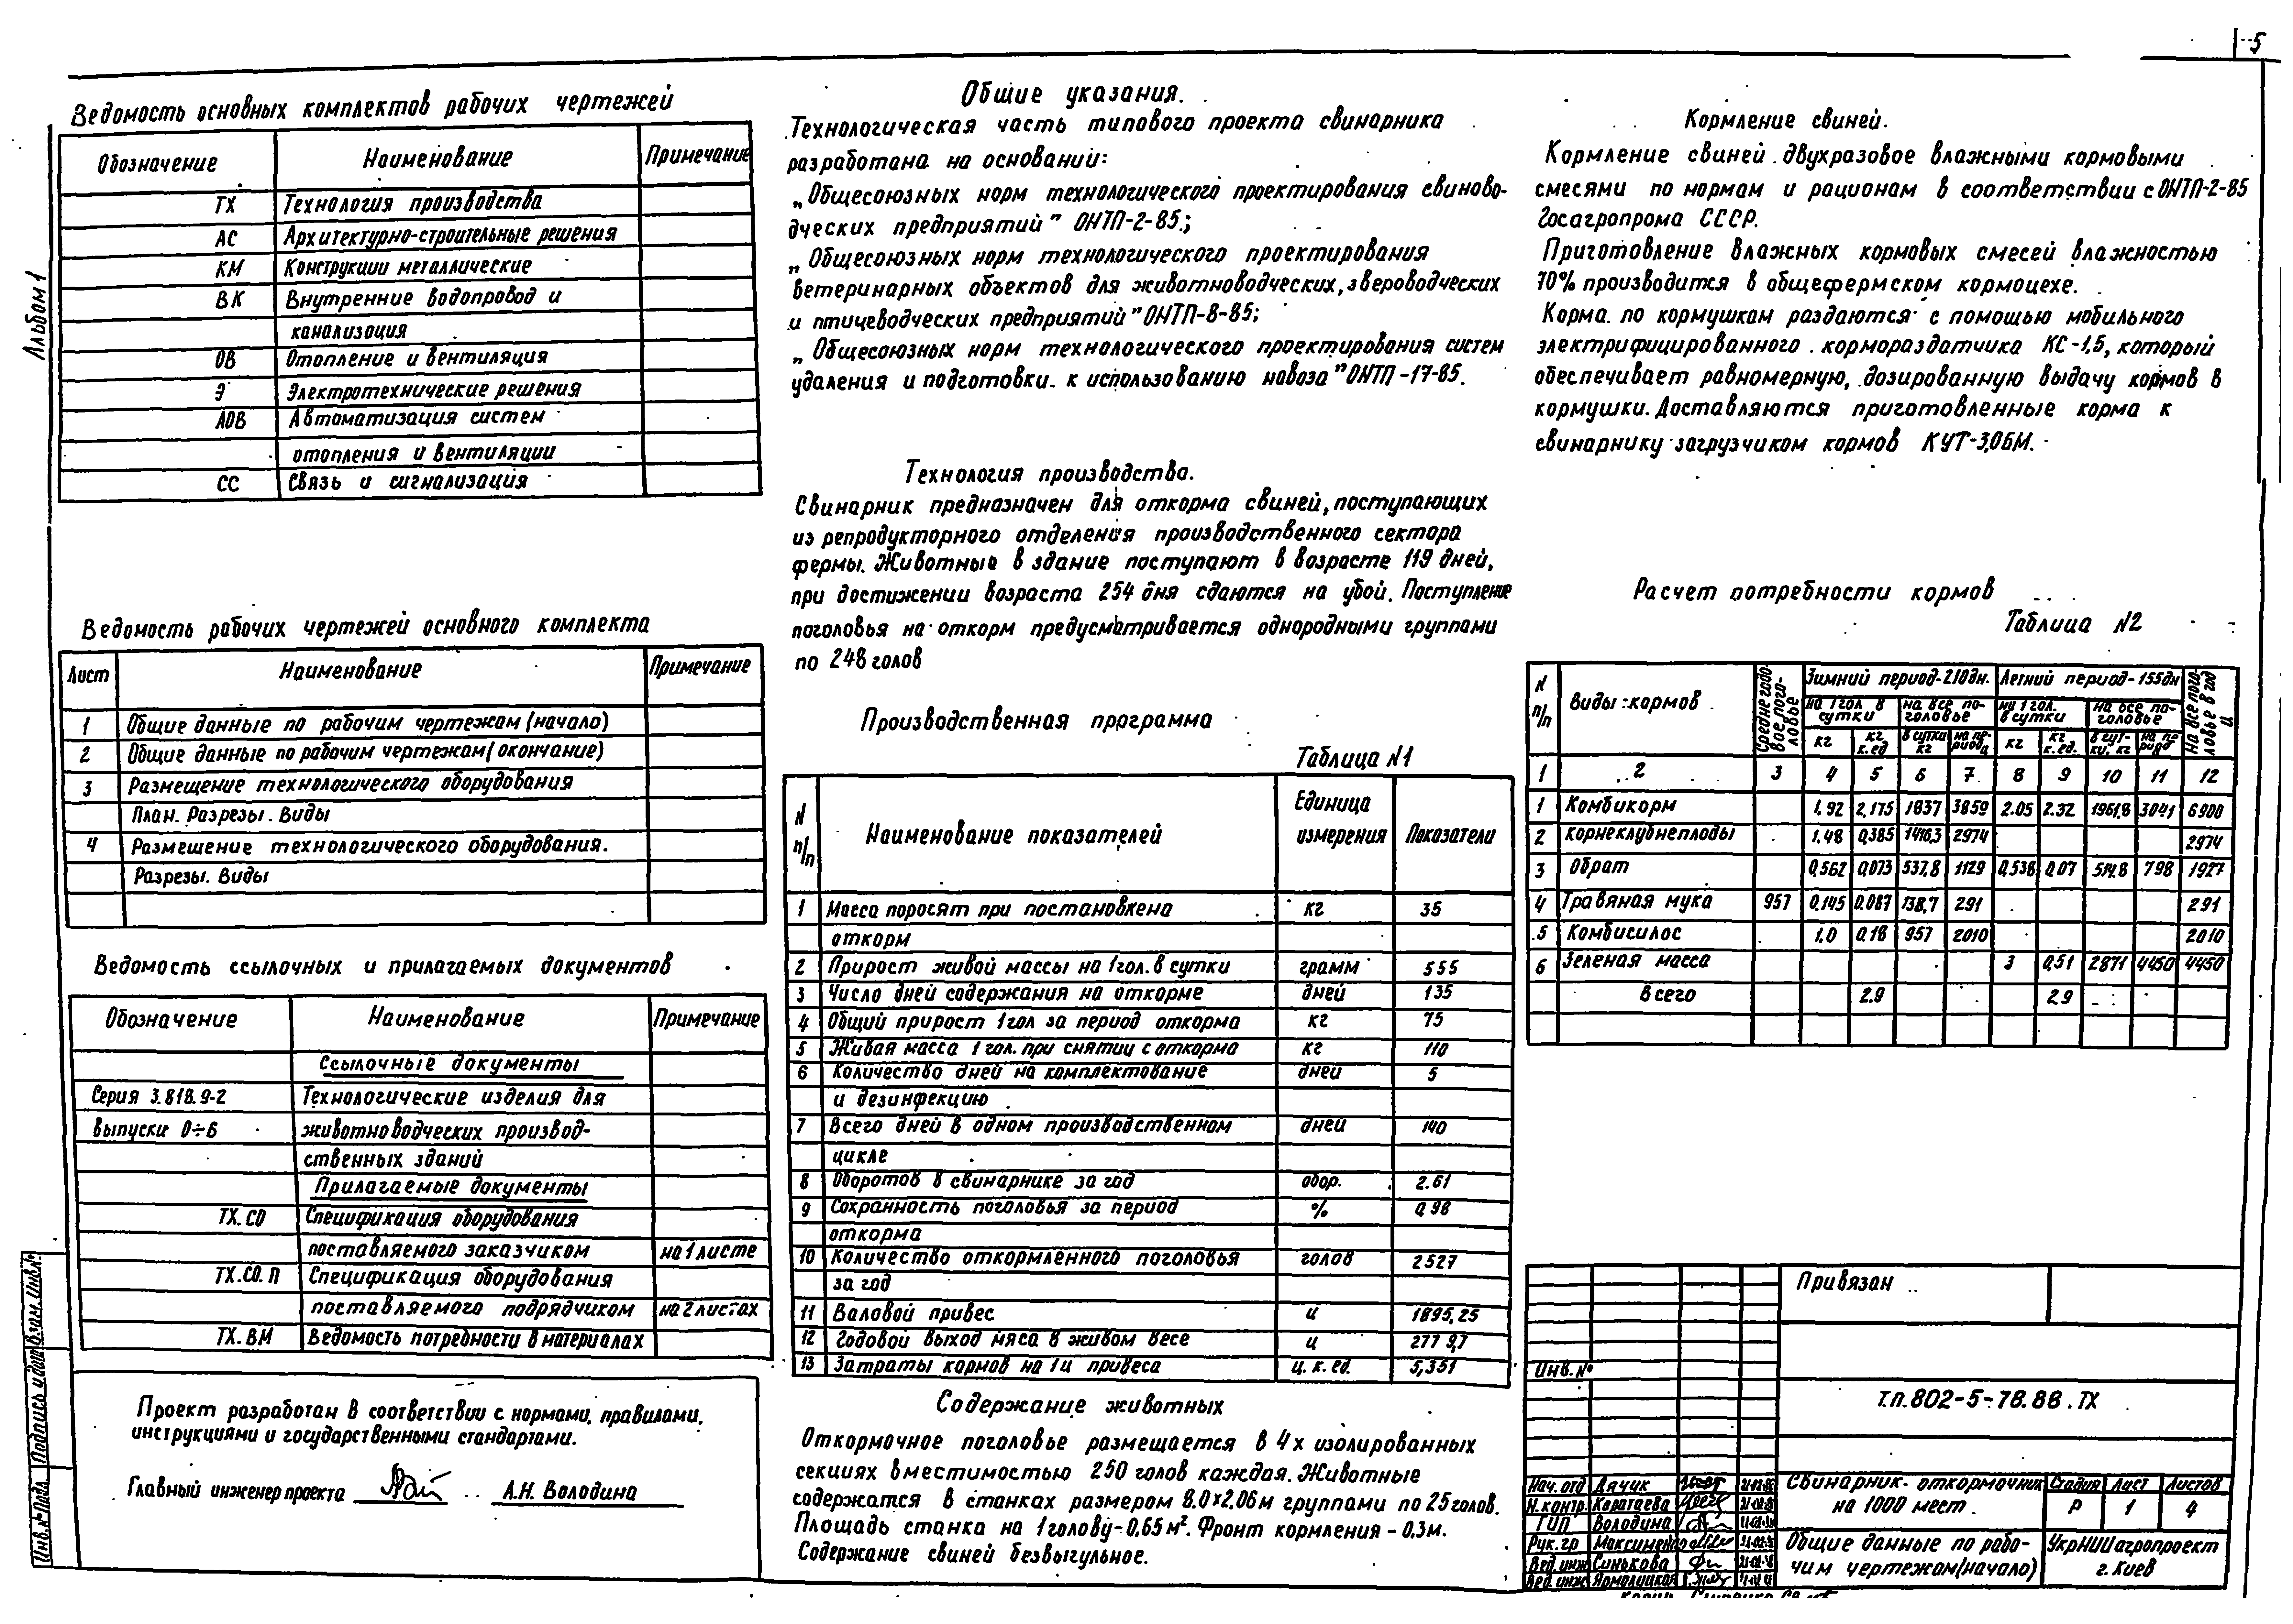 5
Альбом 1
Ведомость основных комплектов рабочих чертежей
Обозначение Наименование Примечание
ТХ Технология производства
АС Архитектурно-строительные решения
КМ Конструкции металлические
ВК Внутренние водопровод и
канализация
ОВ Отопление и вентиляция
Э Электротехнические решения
АОВ Автоматизация систем
отопления и вентиляции
СС Связь и сигнализация
Ведомость рабочих чертежей основного комплекта
Лист Наименование Примечание
1 Общие данные по рабочим чертежам (начало)
2 Общие данные по рабочим чертежам (окончание)
3 Размещение технологического оборудования
План. Разрезы. Виды
4 Размещение технологического оборудования.
Разрезы. Виды
Ведомость ссылочных и прилагаемых документов
Обозначение Наименование Примечание
Ссылочные документы
Серия 3.818.9-2 Технологические изделия для
выпуски 0÷6 животноводческих производ-
ственных зданий
Прилагаемые документы
ТХ.СО Спецификация оборудования
поставляемого заказчиком на 1 листе
ТХ.СО.П Спецификация оборудования
поставляемого подрядчиком на 2 листах
ТХ.ВМ Ведомость потребности в материалах
Проект разработан в соответствии с нормами, правилами,
инструкциями и государственными стандартами.
Главный инженер проекта А.Н. Володина
Инв.№ подл. Подпись и дата Взам. Инв.№
Общие указания.
Технологическая часть типового проекта свинарника
разработана на основании:
„Общесоюзных норм технологического проектирования свиново-
дческих предприятий" ОНТП-2-85.;
„Общесоюзных норм технологического проектирования
ветеринарных объектов для животноводческих, звероводческих
и птицеводческих предприятий" ОНТП-8-85;
„Общесоюзных норм технологического проектирования систем
удаления и подготовки к использованию навоза" ОНТП-17-85.
Технология производства.
Свинарник предназначен для откорма свиней, поступающих
из репродукторного отделения производственного сектора
фермы. Животные в здание поступают в возрасте 119 дней,
при достижении возраста 254 дня сдаются на убой. Поступление
поголовья на откорм предусматривается однородными группами
по 248 голов
Производственная программа
Таблица N1
N п/п Наименование показателей Единица измерения Показатели
1 Масса поросят при постановке на кг 35
откорм
2 Прирост живой массы на 1 гол. в сутки грамм 555
3 Число дней содержания на откорме дней 135
4 Общий прирост 1 гол за период откорма кг 75
5 Живая масса 1 гол. при снятии с откорма кг 110
6 Количество дней на комплектование дней 5
и дезинфекцию
7 Всего дней в одном производственном дней 140
цикле
8 Оборотов в свинарнике за год обор. 2.61
9 Сохранность поголовья за период % 0,98
откорма
10 Количество откормленного поголовья голов 2527
за год
11 Валовой привес ц 1895,25
12 Годовой выход мяса в живом весе ц 2779,7
13 Затраты кормов на 1 ц привеса ц. к. ед. 5,351
Содержание животных
Откормочное поголовье размещается в 4х изолированных
секциях вместимостью 250 голов каждая. Животные
содержатся в станках размером 8.0×2.06м группами по 25 голов.
Площадь станка на 1 голову-0,65м². Фронт кормления-0,3м.
Содержание свиней безвыгульное.
Кормление свиней.
Кормление свиней двухразовое влажными кормовыми
смесями по нормам и рационам в соответствии с ОНТП-2-85
Госагропрома СССР.
Приготовление влажных кормовых смесей влажностью
70% производится в общефермском кормоцехе.
Корма по кормушкам раздаются с помощью мобильного
электрифицированного кормораздатчика КС-1,5, который
обеспечивает равномерную, дозированную выдачу кормов в
кормушки. Доставляются приготовленные корма к
свинарнику загрузчиком кормов КУТ-3,0БМ.
Расчет потребности кормов
Таблица N2
N п/п Виды кормов Среднегодовое поголовье Зимний период-210дн. Летний период-155дн На все поголовье в год ц
на 1 гол в сутки на все поголовье на 1 гол. в сутки на все поголовье
кг кг к.ед в сутки кг на период ц кг кг к.ед. в сутки, кг на период
1 2 3 4 5 6 7 8 9 10 11 12
1 Комбикорм 1.92 2,175 1837 3859 2.05 2.32 1961,8 3041 6900
2 Корнеклубнеплоды 1.48 0,385 1416,3 2974 2974
3 Обрат 0,562 0,073 537,8 1129 0,538 0,07 514,8 798 1927
4 Травяная мука 957 0,145 0.087 138,7 291 291
5 Комбисилос 1,0 0,18 957 2010 2010
6 Зеленая масса 3 0,51 2871 4450 4450
Всего 2.9 2.9
Привязан
Инв.№
Т.П. 802-5-78.88. ТХ
Нач. отд Дячук
Н.контр. Коратаева
ГИП Володина
Рук.гр
Вед.инж Синькова
Вед.инж Ярмолицкая
Свинарник-откормочник
на 1000 мест.
Стадия Лист Листов
Р 1 4
Общие данные по рабо-
чим чертежам (начало)
УкрНИИагропроект
г. Киев